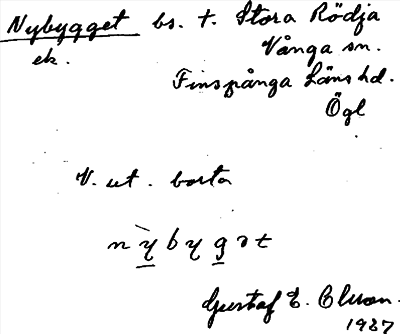 Nybygget bs. t. Stora Rödja
ek. Vånga sn.
Finspånga Läns hd.
Ögl
V. ut. borta
n ỳ̠ b y g̠ ə t
Gustaf E. Olsson.
1937